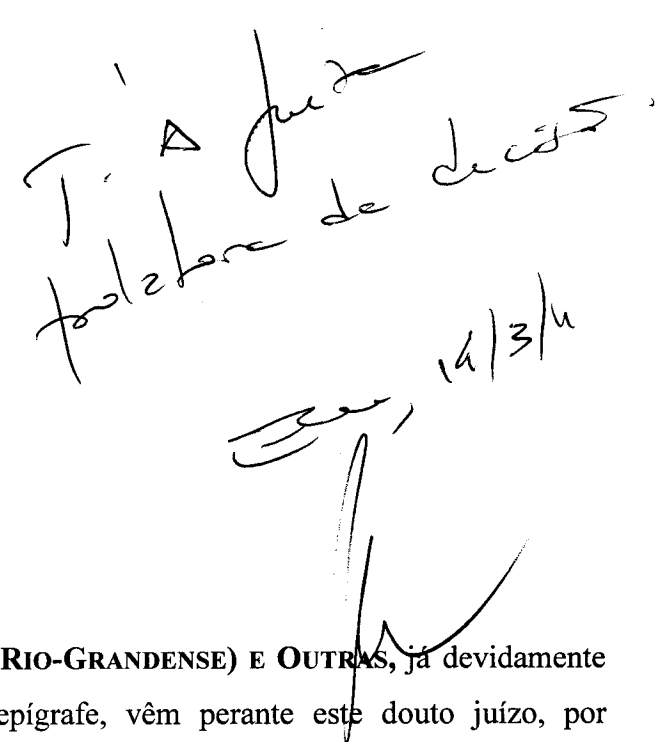 J. À Juíza
prolatora da decisão.
14/3/11
RIO-GRANDENSE) E OUTRAS, já devidamente
epígrafe, vêm perante este douto juízo, por